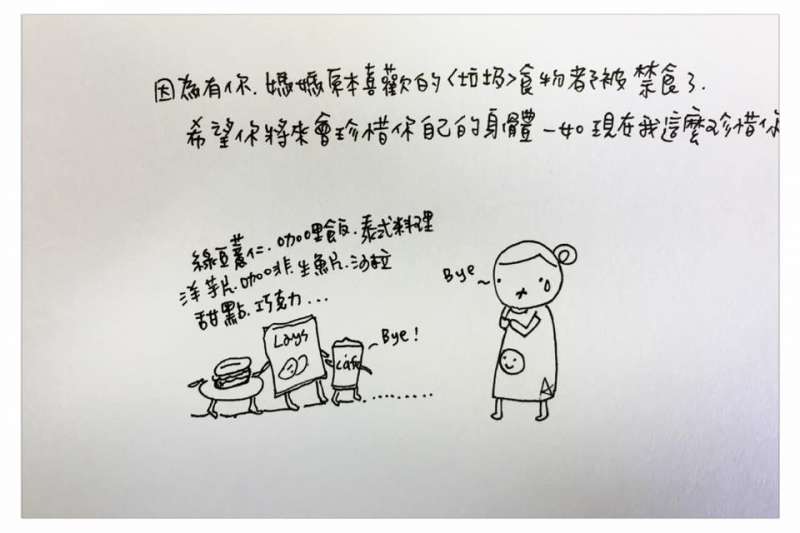 因為有你.媽媽原本喜歡的<垃圾>食物都被禁食了.
希望你將來會珍惜你自己的身體一如現在我這麼珍惜你
綠豆薏仁.咖哩飯.泰式料理
洋芋片.咖啡.生魚片.沙拉
甜點.巧克力...
Bye
Lays
Bye!
café